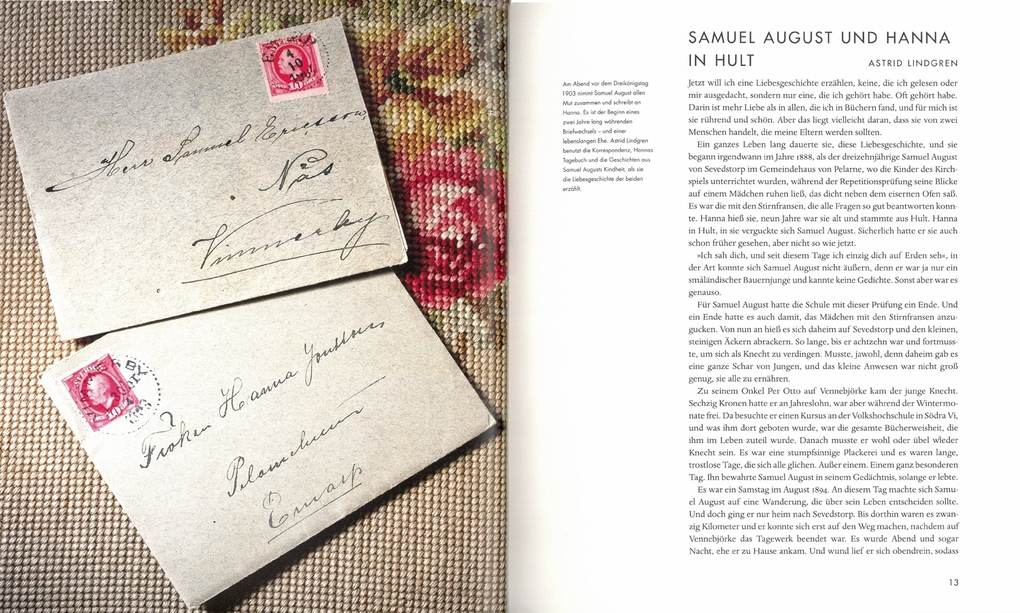 Herr Samuel Ericsson
Näs
Vimmerby
Fröken Hanna Jonsson
SAMUEL AUGUST UND HANNA
IN HULT
ASTRID LINDGREN
Am Abend vor dem Dreikönigstag
1903 nimmt Samuel August allen
Mut zusammen und schreibt an
Hanna. Es ist der Beginn eines
zwei Jahre lang währenden
Briefwechsels – und einer
lebenslangen Ehe. Astrid Lindgren
benutzt die Korrespondenz, Hannas
Tagebuch und die Geschichten aus
Samuel Augusts Kindheit, als sie
die Liebesgeschichte der beiden
erzählt.
Jetzt will ich eine Liebesgeschichte erzählen, keine, die ich gelesen oder
mir ausgedacht, sondern nur eine, die ich gehört habe. Oft gehört habe.
Darin ist mehr Liebe als in allen, die ich in Büchern fand, und für mich ist
sie rührend und schön. Aber das liegt vielleicht daran, dass sie von zwei
Menschen handelt, die meine Eltern werden sollten.
Ein ganzes Leben lang dauerte sie, diese Liebesgeschichte, und sie
begann irgendwann im Jahre 1888, als der dreizehnjährige Samuel August
von Sevedstorp im Gemeindehaus von Pelarne, wo die Kinder des Kirch-
spiels unterrichtet wurden, während der Repetitionsprüfung seine Blicke
auf einem Mädchen ruhen ließ, das dicht neben dem eisernen Ofen saß.
Es war die mit den Stirnfransen, die alle Fragen so gut beantworten konn-
te. Hanna hieß sie, neun Jahre war sie alt und stammte aus Hult. Hanna
in Hult, in sie verguckte sich Samuel August. Sicherlich hatte er sie auch
schon früher gesehen, aber nicht so wie jetzt.
»Ich sah dich, und seit diesem Tage ich einzig dich auf Erden seh«, in
der Art konnte sich Samuel August nicht äußern, denn er war ja nur ein
småländischer Bauernjunge und kannte keine Gedichte. Sonst aber war es
genauso.
Für Samuel August hatte die Schule mit dieser Prüfung ein Ende. Und
ein Ende hatte es auch damit, das Mädchen mit den Stirnfransen anzu-
gucken. Von nun an hieß es sich daheim auf Sevedstorp und den kleinen,
steinigen Äckern abrackern. So lange, bis er achtzehn war und fortmuss-
te, um sich als Knecht zu verdingen. Musste, jawohl, denn daheim gab es
eine ganze Schar von Jungen, und das kleine Anwesen war nicht groß
genug, sie alle zu ernähren.
Zu seinem Onkel Per Otto auf Vennebjörke kam der junge Knecht.
Sechzig Kronen hatte er an Jahreslohn, war aber während der Wintermo-
nate frei. Da besuchte er einen Kursus an der Volkshochschule in Södra Vi,
und was ihm dort geboten wurde, war die gesamte Bücherweisheit, die
ihm im Leben zuteil wurde. Danach musste er wohl oder übel wieder
Knecht sein. Es war eine stumpfsinnige Plackerei und es waren lange,
trostlose Tage, die sich alle glichen. Außer einem. Einem ganz besonderen
Tag. Ihn bewahrte Samuel August in seinem Gedächtnis, solange er lebte.
Es war ein Samstag im August 1894. An diesem Tag machte sich Samu-
el August auf eine Wanderung, die über sein Leben entscheiden sollte.
Und doch ging er nur heim nach Sevedstorp. Bis dorthin waren es zwan-
zig Kilometer und er konnte sich erst auf den Weg machen, nachdem auf
Vennebjörke das Tagewerk beendet war. Es wurde Abend und sogar
Nacht, ehe er zu Hause ankam. Und wund lief er sich obendrein, sodass
13